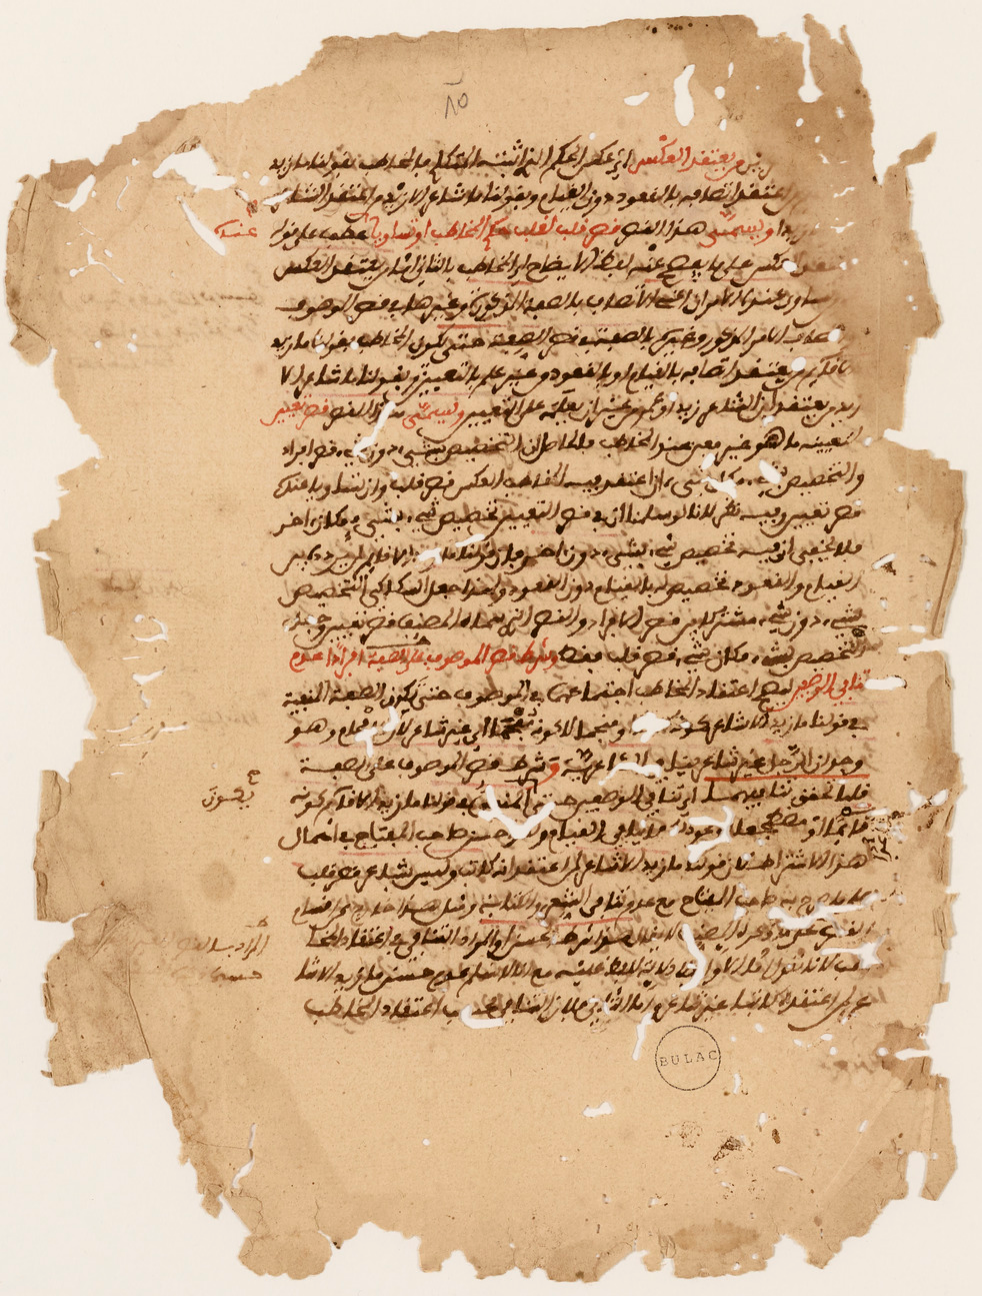 من يعتقد العكس اي عكس الحكم الذي اثبته المتكلم فالمخاطب بقولنا ما زيد
اعتقد اتصافه بالقعود دون القيام وبقولنا ما شاعر الا زيد من اعتقد ان الشاعر
زيد او يسمى هذا القصر قصر قلب لقلب حكم المخاطب او تساويا عطف على قوله
عنده
يعتقد العكس على ما يفصح عنه لفظ الايضاح اي المخاطب بالثاني اما من يعتقد العكس
تساوى عنده الامران اعني الاتصاف بالصفة المذكورة وغيرها في قصر الموصوف
الامر المذكور وغيره بالصفة في قصر الصفة حتى يكون المخاطب بقولنا ما زيد
الا قائم من يعتقد اتصافه بالقيام او بالقعود من غير علم بالتعيين وبقولنا ما شاعر الا
زيد من يعتقد ان الشاعر زيد او عمرو من غير ان يعلمه على التعيين ويسمى هذا القصر قصر تعيين
لتعيينه ما هو غير معين عند المخاطب فالحاصل ان التخصيص بشيء دون شيء قصر افراد
والتخصيص بشيء مكان شيء ان اعتقد فيه المخاطب العكس قصر قلب وان تساويا عنده
قصر تعيين وفيه نظر لانا لو سلمنا ان في قصر التعيين تخصيص شيء بشيء مكان اخر
فلا يخفى ان فيه تخصيص شيء بشيء دون اخر فان قولنا ما زيد الا قايم لمن يردده بين
القيام والقعود تخصيص له بالقيام دون القعود ولهذا جعل السكاكي التخصيص
بشيء دون شيء مشتركا بين قصر الافراد والقصر الذي سماه المصنف قصر تعيين وجعل
التخصيص بشيء مكان شيء قصر قلب فقط وشرط قصر الموصوف على الصفة افرادا عدم
تنافي الوصفين ليصح اعتقاد المخاطب اجتماعهما في الموصوف حتى تكون الصفة المنفية
في قولنا ما زيد الا شاعر كونه او منجما لا كونه مفحما اي غير شاعر لان الافحام وهو
وجدان الرجل غير شاعر ينافي الشاعرية و شرط قصر الموصوف على الصفة
قلبا تحقق تنافيهما اي تنافي الوصفين حتى المنفي في قولنا ما زيد الا قائم كونه
يكون
قاعدا او مضطجعا او نحو ذلك مما ينافي القيام ولقد احسن صاحب المفتاح في اهمال
هذا الاشتراط لان قولنا ما زيد الا شاعر لمن اعتقد انه كاتب وليس بشاعر قصر قلب
على ما صرح به صاحب المفتاح مع عدم تنافي الشعر والكتابة ومثل هذا خارج عن اقسام
القصر على ما ذكره المصنف لا يقال هذا شرط الحسن او المراد التنافي في اعتقاد المخا
طب لانا نقول اما الاول فلا دلالة للفظ عليه مع انا لا نسلم عدم حسن ما زيد الا شا
عر لمن اعتقده كاتبا غير شاعر واما الثاني فلان التنافي بحسب اعتقاد المخاطب
٨٥
BULAC